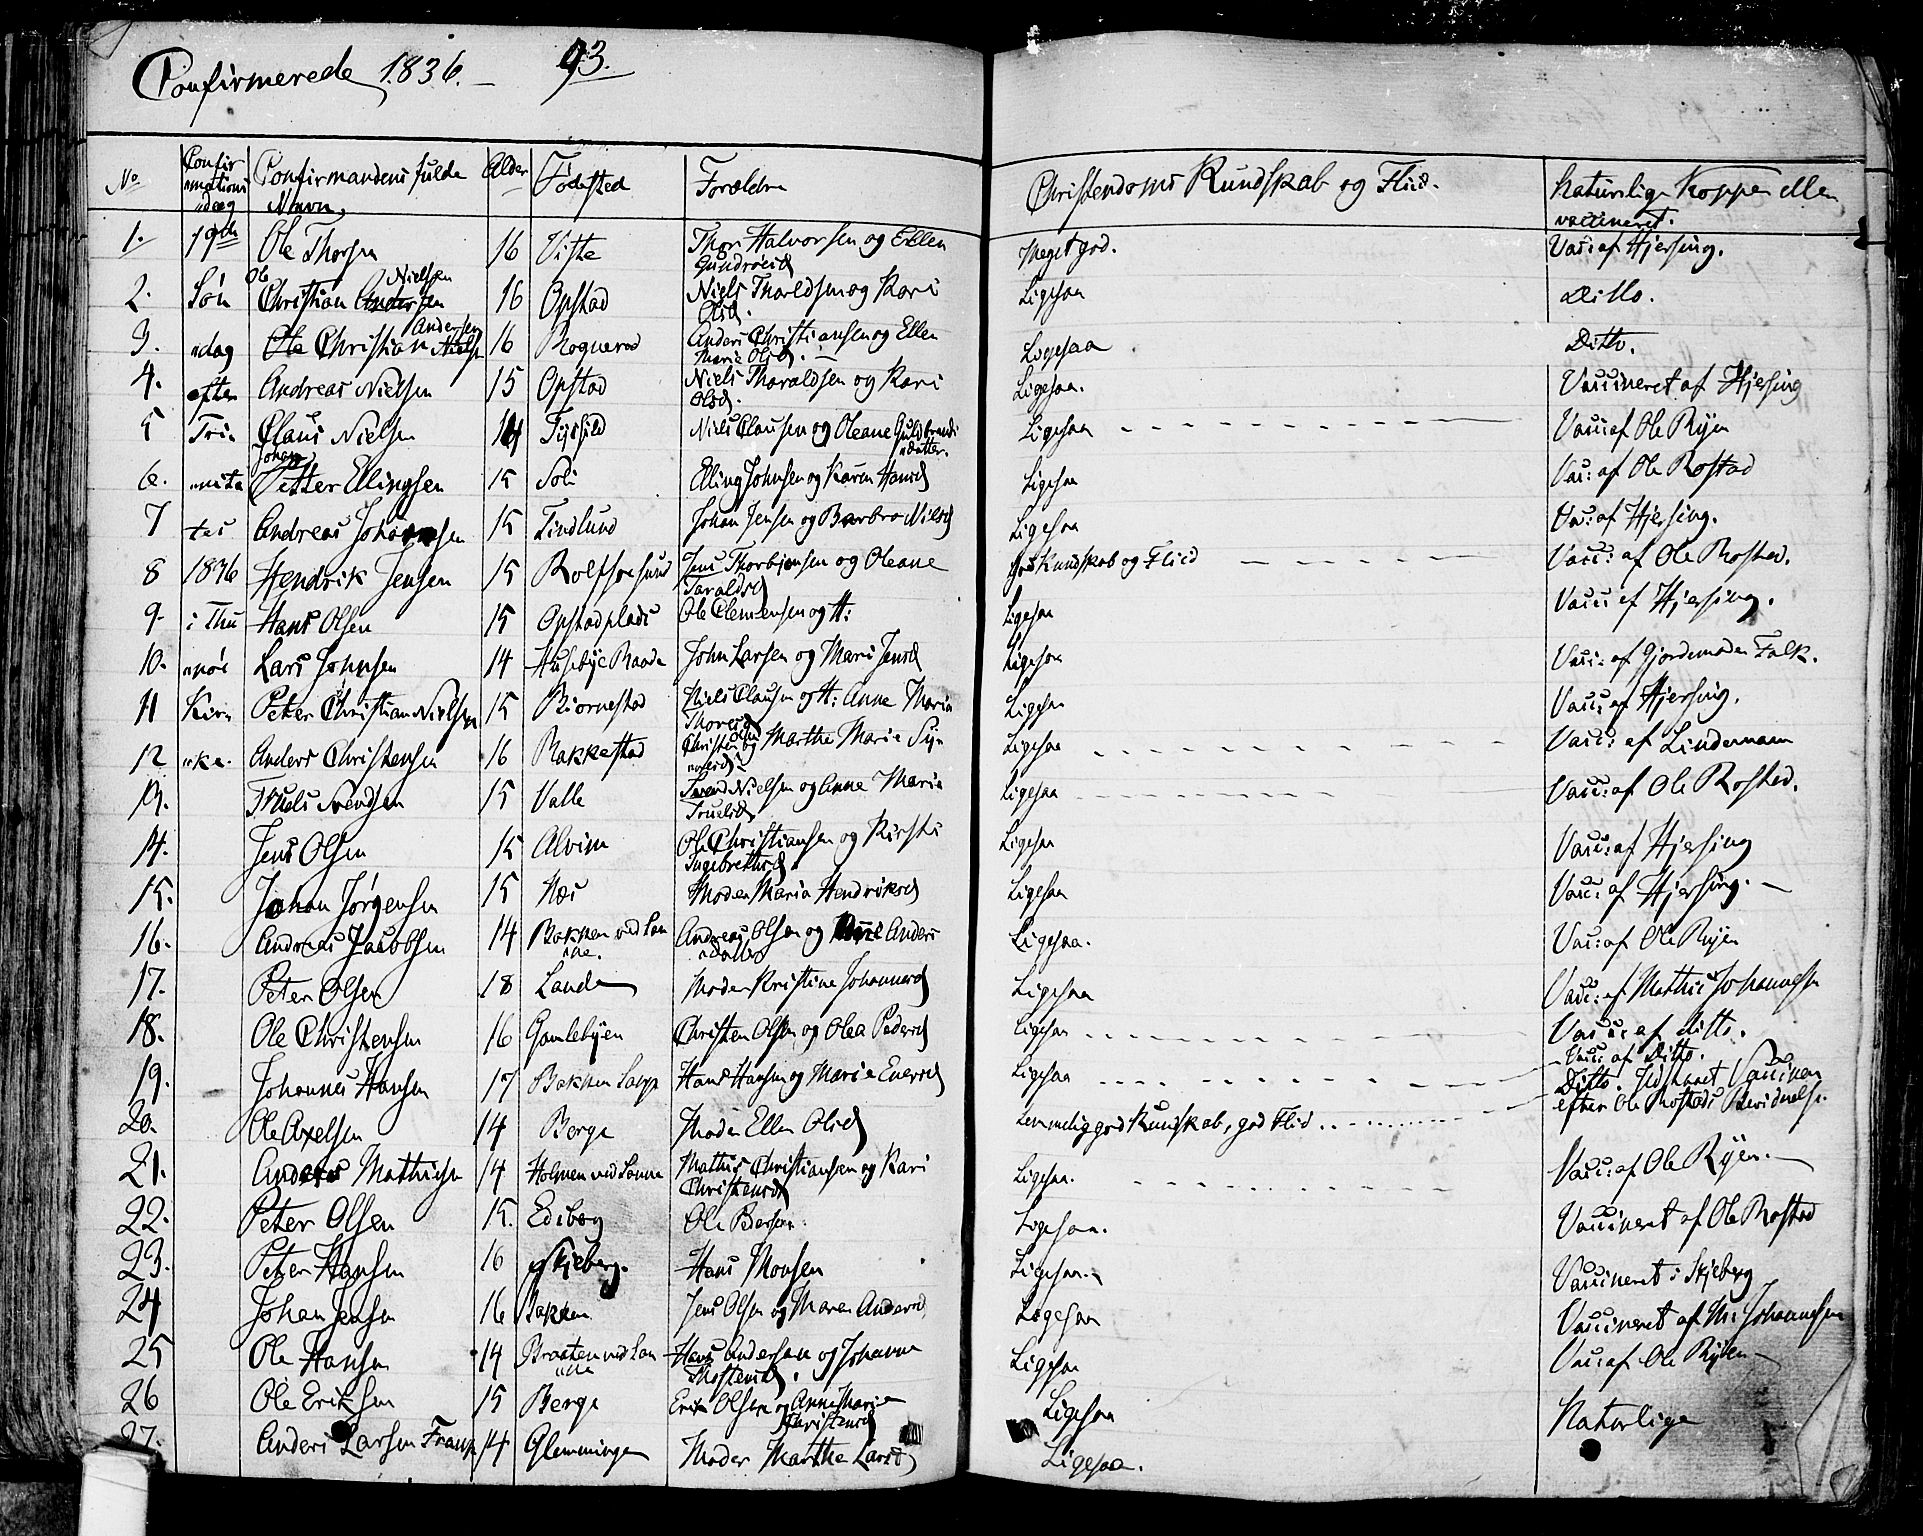 Confirmerede 1836. — 93.
No Confirmationsdag Confirmandens fulde Navn, Alder Fødested Forældre Christendoms Kundskab og Fliid. Naturlige Kopper eller vaccineret.
1. 19de Ole Thorsen 16 Viste Thor Halvorsen og Ellen Meget god. Vacc: af Hjersing.
2. Søn Ole Christian Nielsen 16 Opstad Niels Tharaldsen og Kari Olsd. Ligesaa Ditto.
3. dag Ole Christian Andersen 16 Anders Christiansen og Ellen Marie Olsd. Ligesaa Ditto.
4. efter Andreas Nielsen 15 Opstad Niels Tharaldsen og Kari Olsd. Ligesaa. Vaccineret af Hjersing
5 Tri Claus Nielsen 14 Niels Clausen og Oleane Guldbrandsdatter. Ligesaa Vacc: af Ole Ryen
6. nita Johan Petter Ellingsen 15 Soli Elling Johnsen og Karen Hansd Ligesaa Vac: af Ole Rostad
7 tes Andreas Johansen 15 Tindlund Johan Jensen og Barbro Nielsd Ligesaa Vac: af Hjersing.
8 1836 Hendrik Jensen 15 Rolfsøesund Jens Thorbjønsen og Oleane Taraldsd god Kundskab og Fliid Vacc: af Ole Rosted.
9. i Thu Hans Olsen 15 Opstadplads Ole Clemensen og H: Ligesaa Vacc af Hjersing.
10. nøe Lars Johnsen 14 Husebye Raade John Larsen og Mari Jensd Ligesaa Vacc: af Gjordemoder Falk.
11 Kir Peter Christian Nielsen 15 Biørnestad Niels Clausen og H: Anne Maria Thoresd Ligesaa Vacc: af Hjersing.
12 ke. Anders Christensen 16 Rakkestad Christen og Marthe Marie Ligesaa Vacc: af Lindemann
13. Truels Svendsen 15 Valle Svend Nielsen og Anne Maria Truelsd Ligesaa Vacc: af Ole Rosted.
14. Jens Olsen 15 Alvim Ole Christiansen og Kirsti Ingebretsd Ligesaa Vacc: af Hjersing
15. Johan Jørgensen 15 Næs Moder Maria Hendriksd Ligesaa Vacc: af Hjersing. —
16. Andreas Jacobsen 14 Bakken ved Sanne. Andreas Olsen og Anders datter Ligesaa. Vac: af Ole Ryen
17. Peter Olsen 18 Lande Moder Kristine Johannesd Ligesaa Vacc: af Mathis Johannesen
18. Ole Christensen 16 Gamlebyen Christen Olsen og Olea Pedersd Ligesaa Vacc: af ditto.
19. Johannes Hansen 17 Bakken Hans Hansen og Marie Enersd Ligesaa Vacc: af Ditto.
20. Ole Axelsen 14 Berge Moder Ellen Olsd Temmelig god Kundskab, god Fliid Ditto. efter Ole Rosteds
21. Anders Mathisen 14 Holmen ved Sanne Mathis Christiansen og Kari Christensd Ligesaa. Vacc: af Ole Ryen. —
22. Peter Olsen 15. Ole Ligesaa. Vaccineret af Ole Rostad
23. Peter Hansen 16 Skjeberg. Hans Monsen Ligesaa. Vaccineret i Skjeberg
24 Johan Jensen 16 Bakken Jens Olsen og Maren Andersd Ligesaa Vaccineret af Ms: Johannesen
25 Ole Hansen 14 Braaten ved Sanne Hans Andersen og Johanne Ligesaa Vac: af Ole Ryen —
26 Ole Eriksen 15 Berge Erik Olsen og Anne Marie Christensd Ligesaa Naturlige
27. Anders Larsen 14 Glemminge Moder Marthe Larsd Ligesaa.